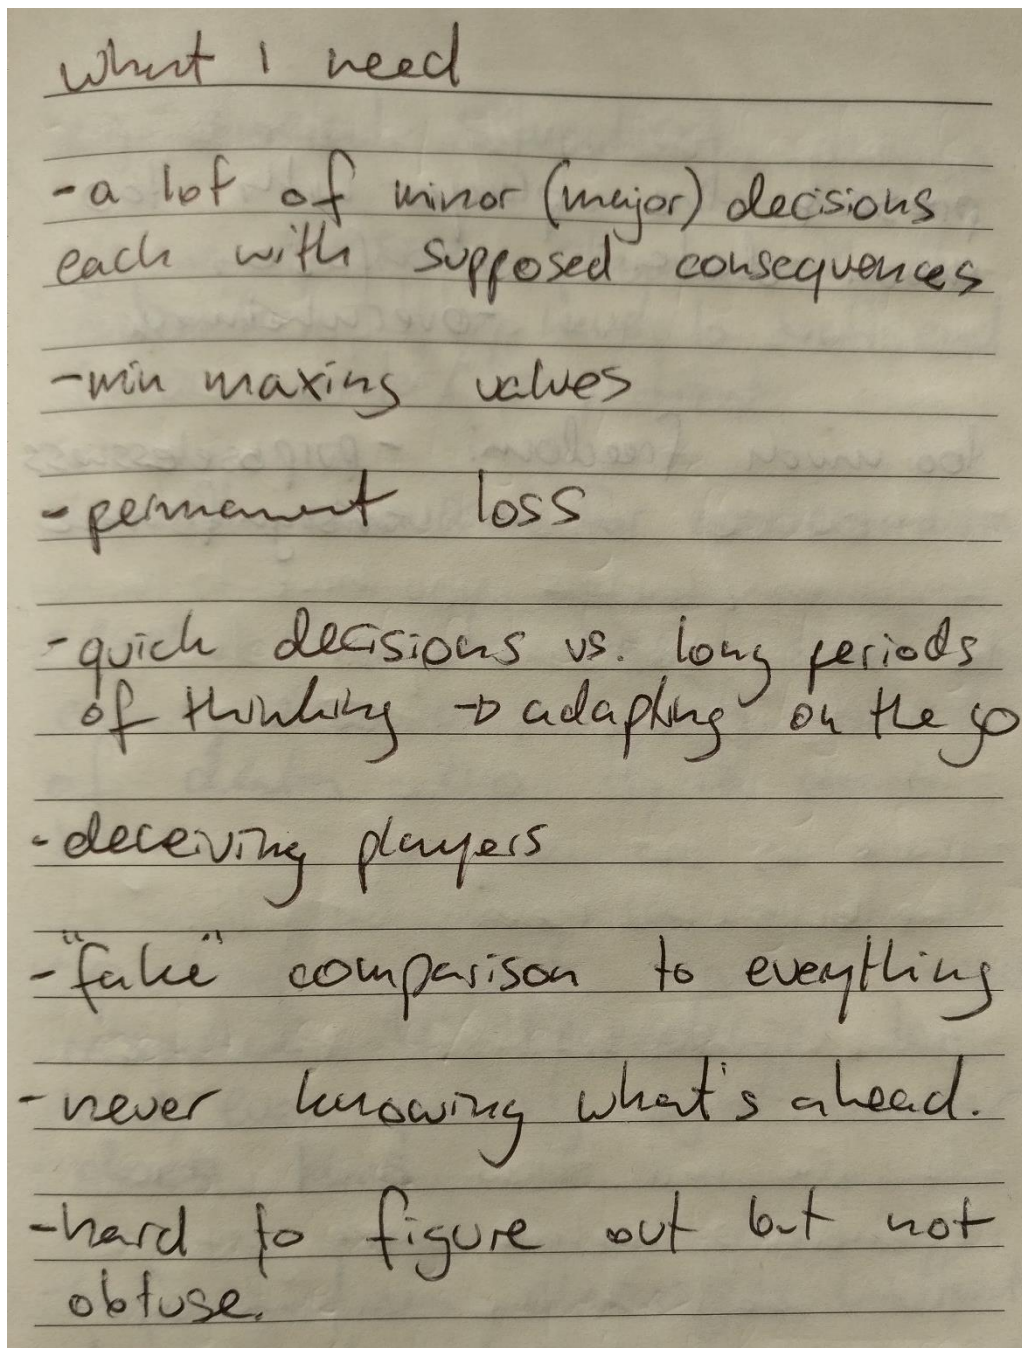 what I need
-a lot of minor (major) decisions
each with supposed consequences
-min maxing values
-permanent loss
-quick decisions vs. long periods
of thinking → adapting on the go
-deceiving players
-"fake" comparison to everything
-never knowing what's ahead.
-hard to figure out but not
obtuse.